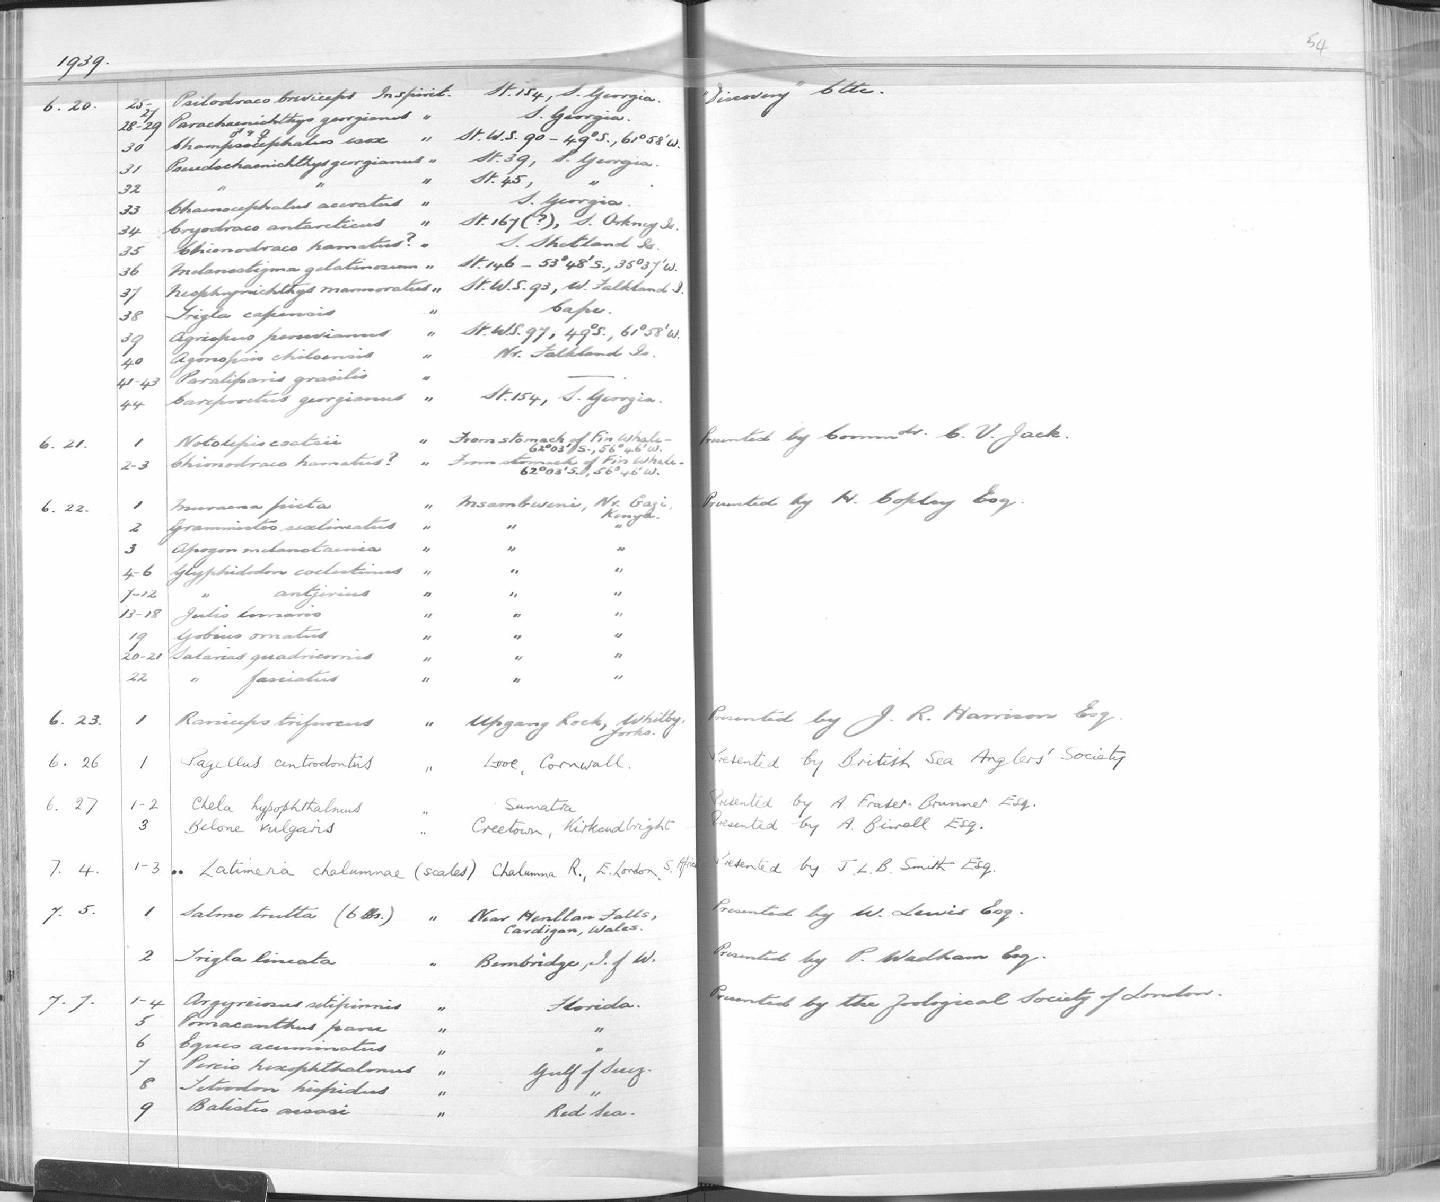 54
1939.
6. 20. 25-27 Psilodraco breviceps In spirit. St. 154, S. Georgia. "Discovery" Cttee.
28-29 Parachaenichthys georgianus " S. Georgia.
♂ & ♀
30 Champsocephalus esox " St. W.S. 90 - 49°S., 61°58'W.
31 Pseudochaenichthys georgianus " St. 39, S. Georgia.
32 " " " St. 45, " .
33 Chaenocephalus aceratus " S. Georgia.
34 Cryodraco antarcticus " St. 167 (?), S. Orkney Is.
35 Chionodraco hamatus? " S. Shetland Is.
36 Melanostigma gelatinosum " St. 146 - 53°48'S., 35°37'W.
37 Neophrynichthys marmoratus " St. W.S. 93, W. Falkland I.
38 Trigla capensis " Cape.
39 Agriopus peruvianus " St. W.S. 97, 49°S., 61°58'W.
40 Agonopsis chiloensis " Nr. Falkland Is.
41-43 Paraliparis gracilis " —
44 Careproctus georgianus " St. 154, S. Georgia.
6. 21. 1 Notolepis coatsii " From stomach of Fin Whale - Presented by Commdr. C. V. Jack.
62°03'S., 56°46'W.
2-3 Chionodraco hamatus? " From stomach of Fin Whale -
62°03'S., 56°46'W.
6. 22. 1 Muraena picta " Msambweni, Nr. Gazi, Presented by H. Copley Esq.
Kenya.
2 Grammistes sexlineatus " " "
3 Apogon melanotaenia " " "
4-6 Glyphidodon coelestinus " " "
7-12 " antjerius " " "
13-18 Julis lunaris " " "
19 Gobius ornatus " " "
20-21 Salarias quadricornis " " "
22 " fasciatus " " "
6. 23. 1 Raniceps trifurcus " Upgang Rock, Whitby, Presented by J. R. Harrison Esq.
Yorks.
6. 26 1 Pagellus centrodontus " Looe, Cornwall. Presented by British Sea Anglers' Society
6. 27 1-2 Chela hypophthalmus " Sumatra Presented by A Fraser-Brunner Esq.
3 Belone vulgaris " Creetown, Kirkcudbright Presented by A. Birrell Esq.
7. 4. 1-3 Latimeria chalumnae (scales) Chalumna R., E. London, S. Africa Presented by J. L. B. Smith Esq.
7. 5. 1 Salmo trutta (6 lbs.) " Near Henllan Falls, Presented by W. Lewis Esq.
Cardigan, Wales.
2 Trigla lineata " Bembridge, I. of W. Presented by P. Wadham Esq.
7. 7. 1-4 Argyreiosus setipinnis " Florida. Presented by the Zoological Society of London.
5 Pomacanthus paru " "
6 Eques acuminatus " "
7 Percis hexophthalmus " Gulf of Suez.
8 Tetrodon hispidus " "
9 Balistes assasi " Red Sea.